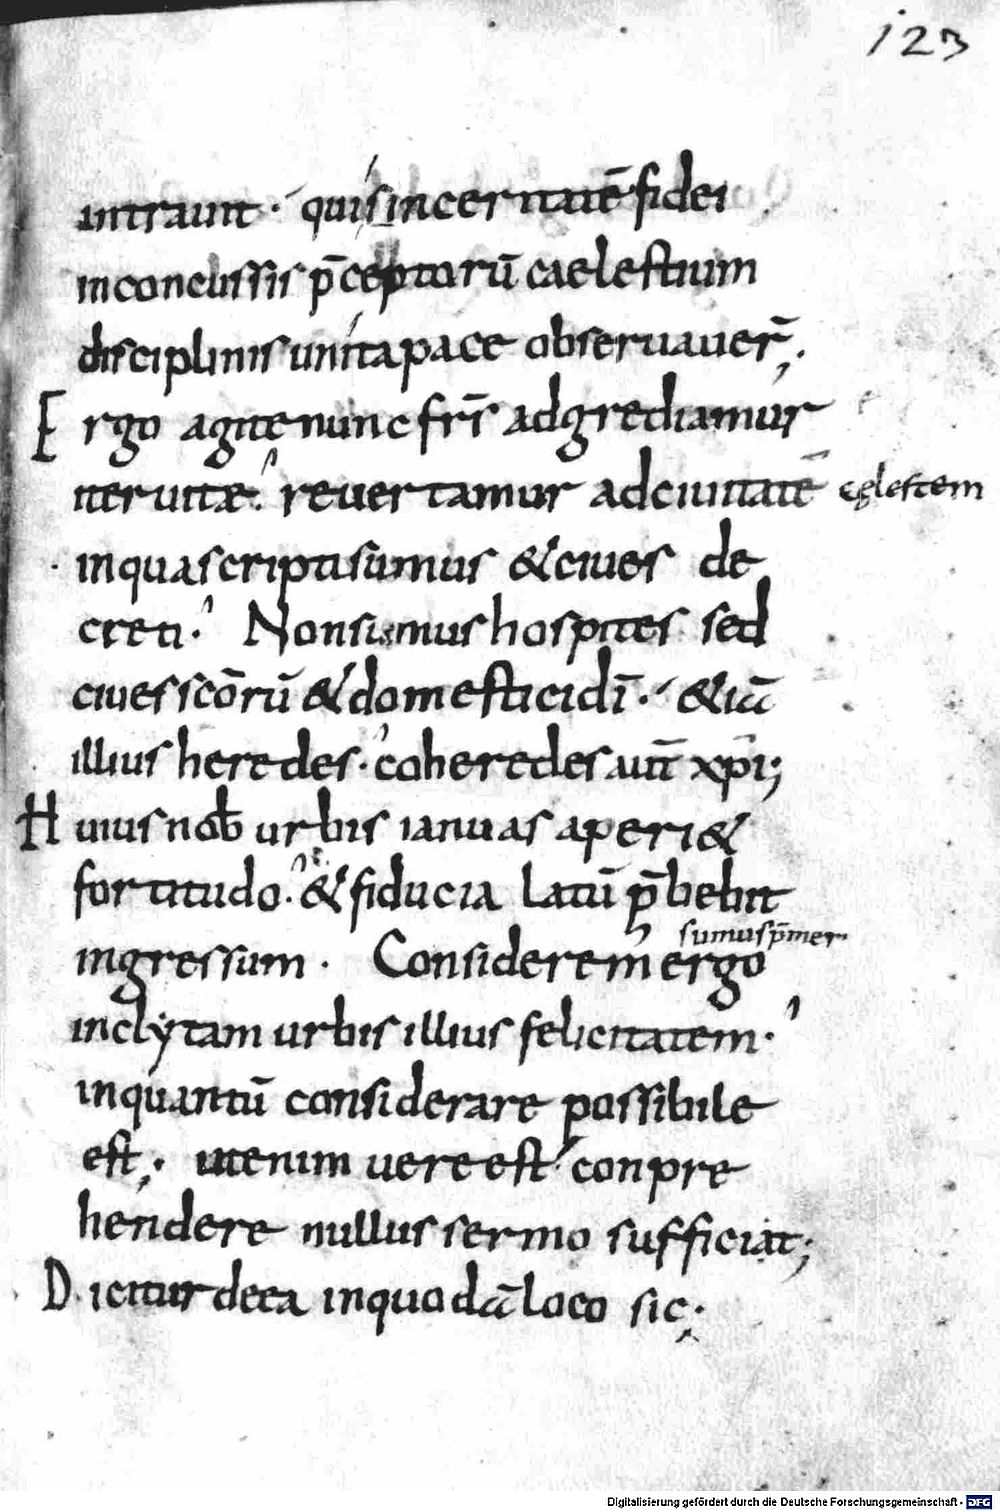 123
intraunt · qui sinceritatē fidei
inconcussis p̄ceptorū caelestium
disciplinis unita pace observauer̄;
Ergo agite nunc fr̄s adgrediamur
iter uitæ · reuertamur ad ciuitatē cęlestem
in qua scripti sumus & ciues de
creti · Non sumus hospites sed
ciues scōrū & domestici dī · & iā
illius heredes · coheredes aut̄ xp̄i;
Huius nob urbis ianuas aperi&
fortitudo · & fiducia latū p̄bebit
sumus p̄mer
ingressum · Considerem ergo
inclytam urbis illius felicitatem ·
inquantū considerare possibile
est; ut enim uere est conpre
hendere nullus sermo sufficiat;
Dicitur de ea in quodā loco sic;
Digitalisierung gefördert durch die Deutsche Forschungsgemeinschaft - DFG